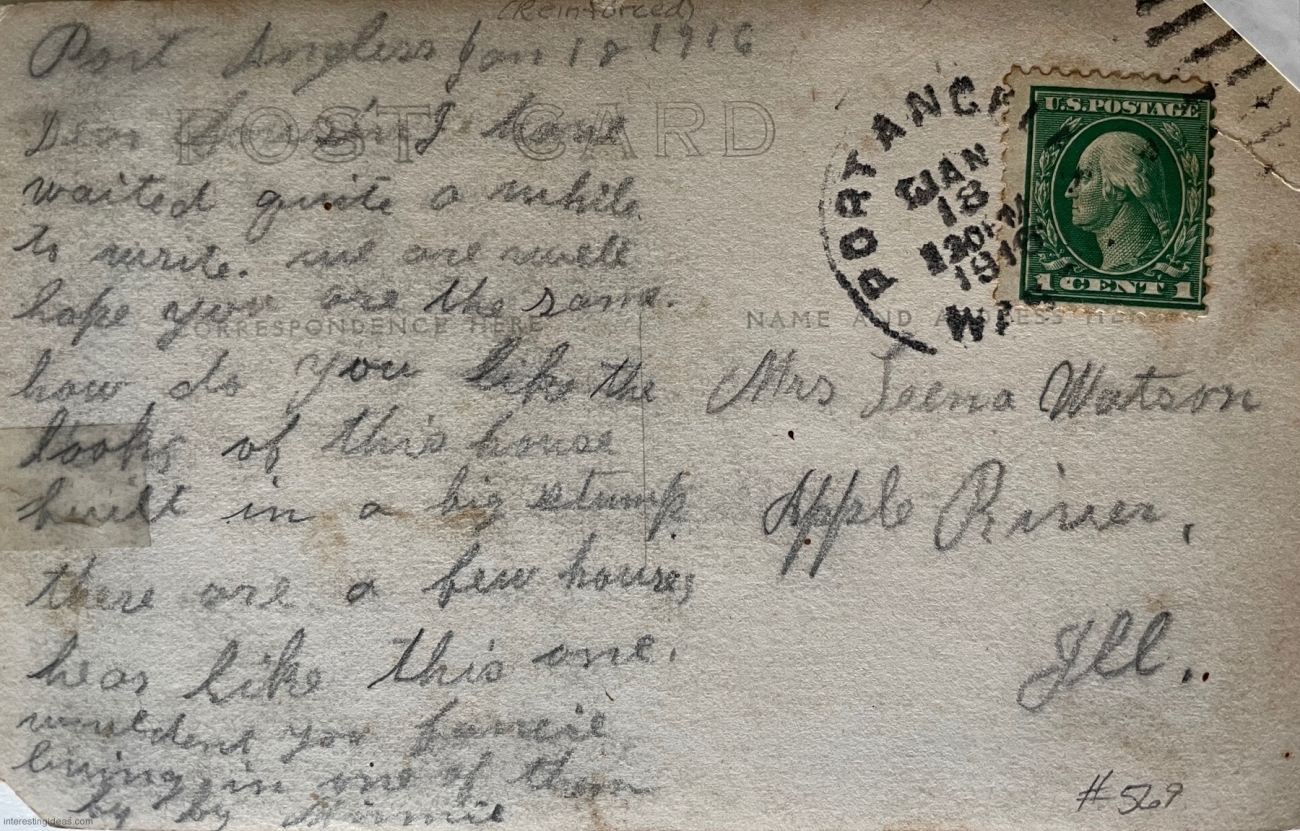 (Reinforced)
Port Angless Jan 18 1916
POST CARD
Dear Cousin I have
waited quite a while
to write. we are well
hope you are the same.
CORRESPONDENCE HERE
how do you like the
looks of this house
built in a big stump
there are a few houses
hear like this one.
wouldent you fancie
living in one of them
by by Minnie
U.S. POSTAGE
1 CENT 1
PORT ANGE
JAN
18
1916
NAME AND ADDRESS HERE
Mrs Leena Watson
Apple River,
Ill..
#569
interestingideas.com